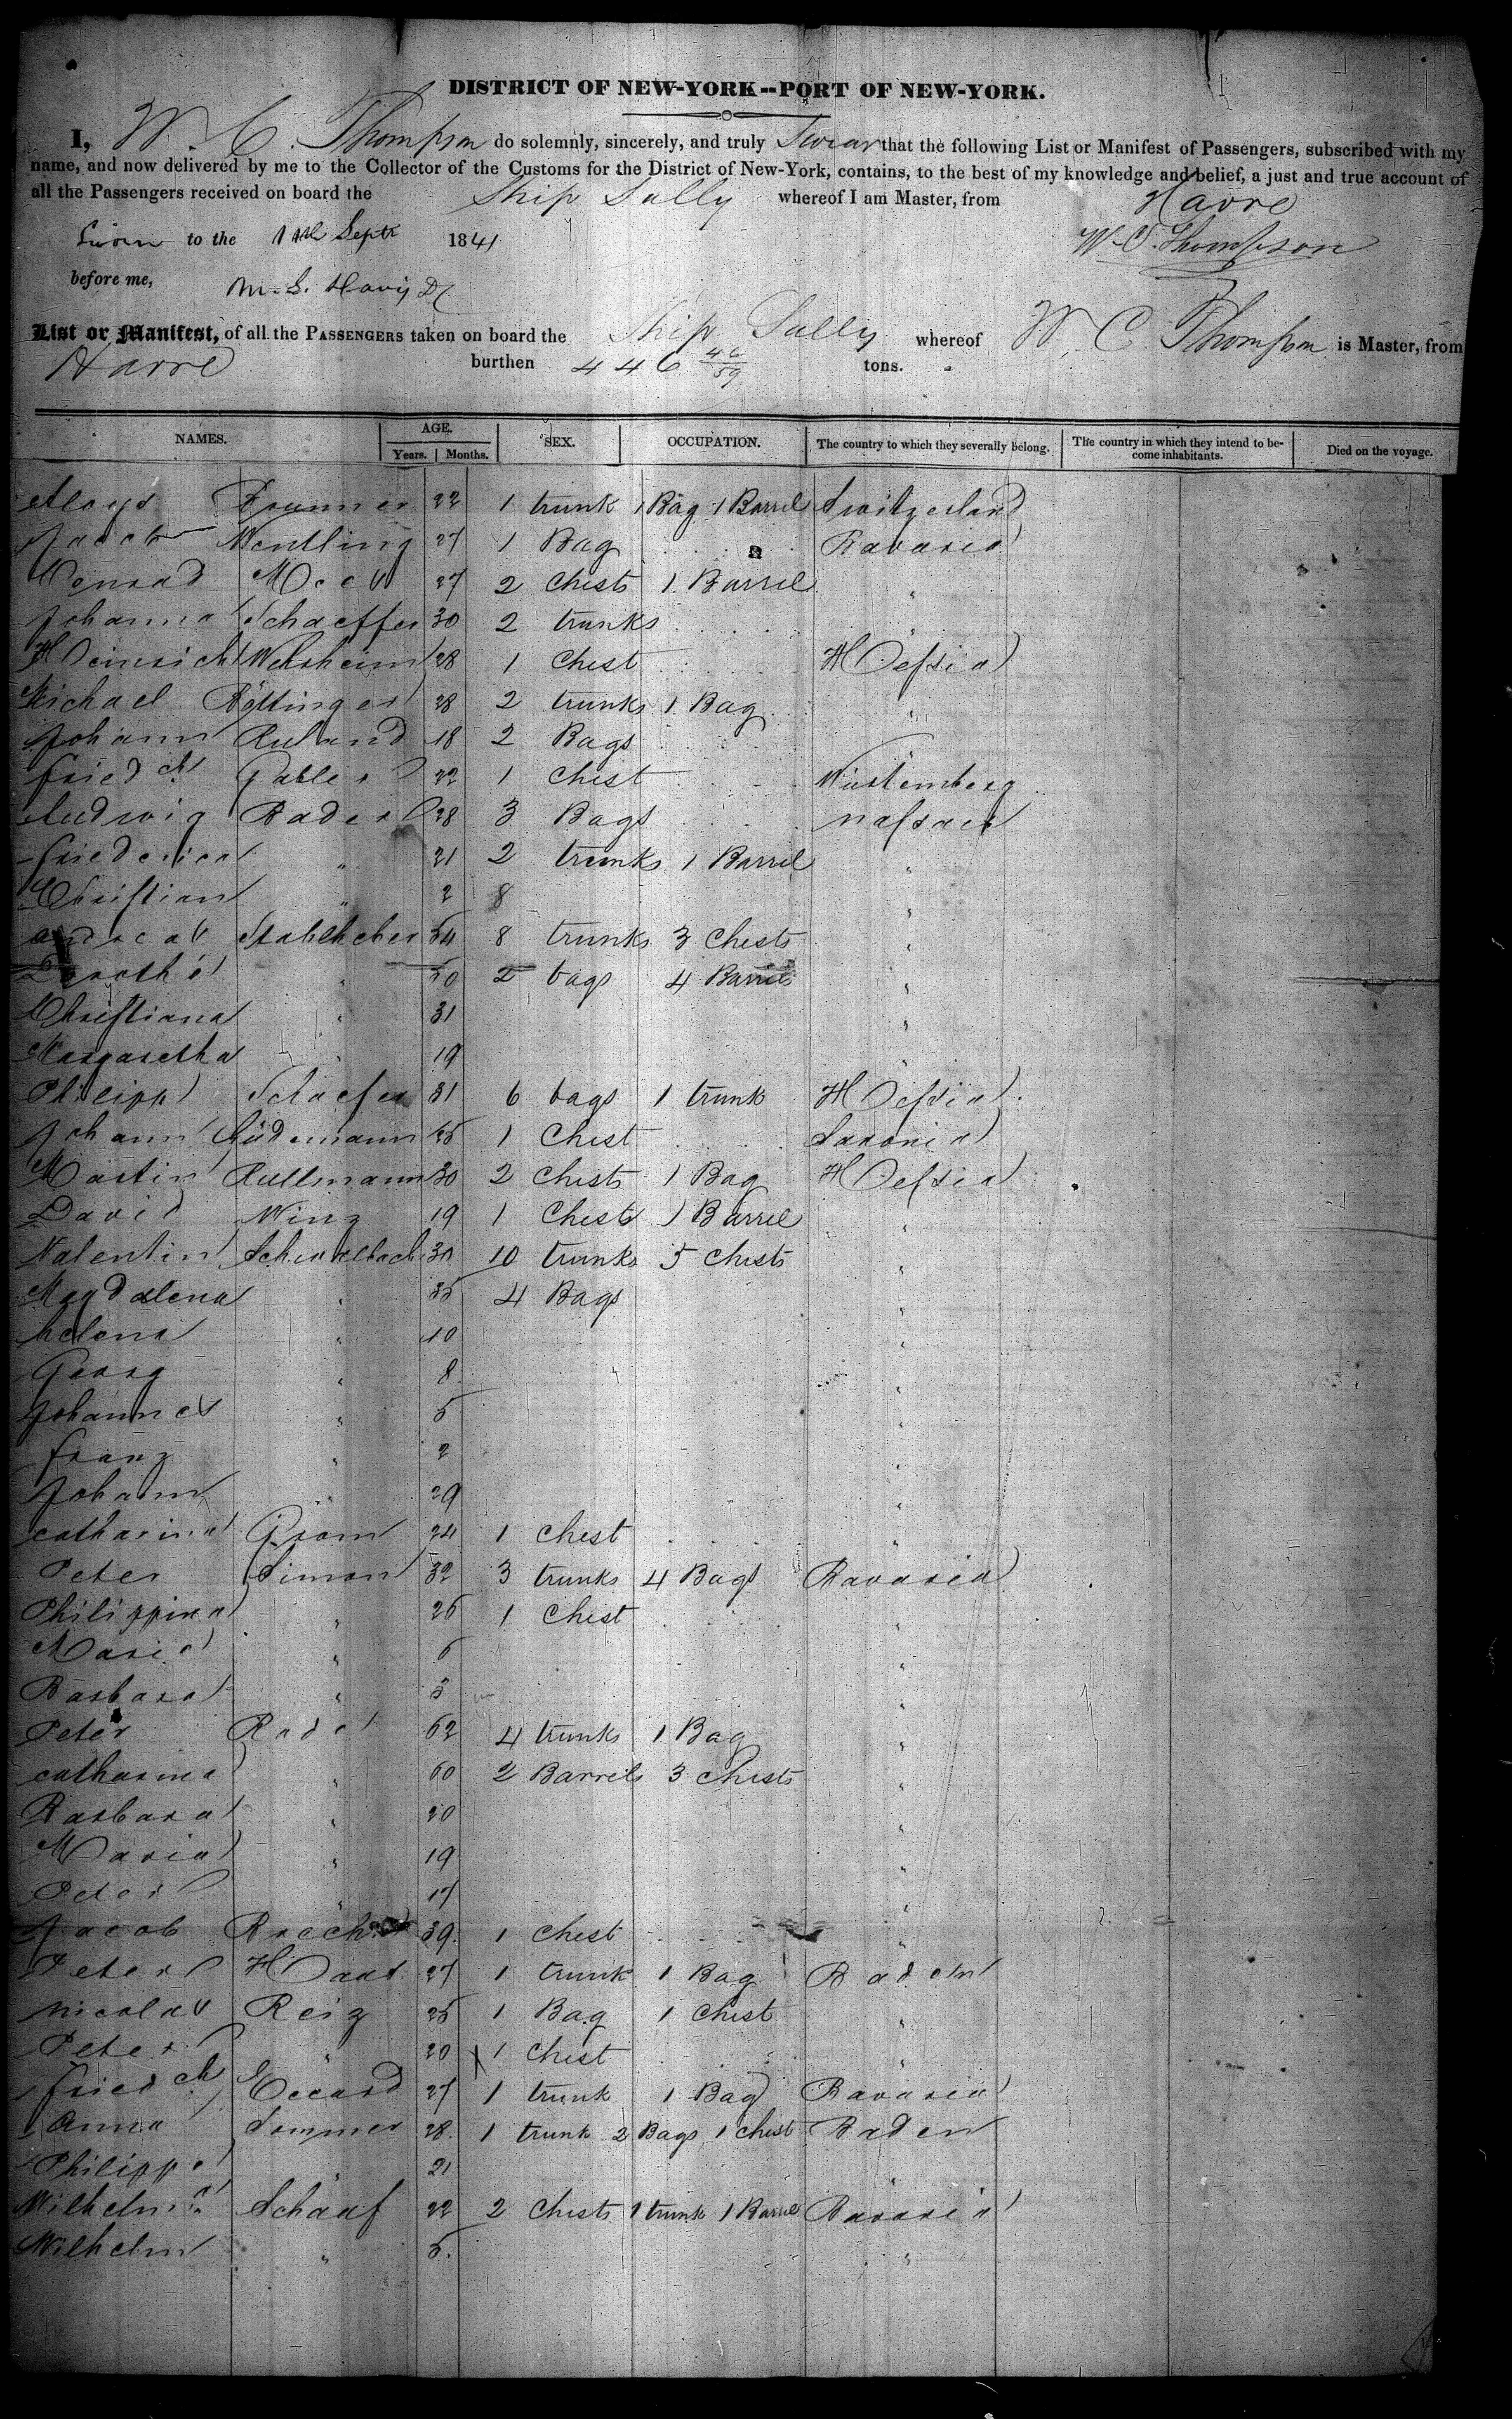 DISTRICT OF NEW-YORK--PORT OF NEW-YORK.
I, W. C. Thompson do solemnly, sincerely, and truly Swear that the following List or Manifest of Passengers, subscribed with my
name, and now delivered by me to the Collector of the Customs for the District of New-York, contains, to the best of my knowledge and belief, a just and true account of
all the Passengers received on board the Ship Sully whereof I am Master, from Havre
Sworn to the Sept 1841 W. C. Thompson
before me,
List or Manifest, of all the PASSENGERS taken on board the Ship Sully whereof W. C. Thompson is Master, from
Havre burthen 446 tons.
NAMES. AGE. Years. Months. SEX. OCCUPATION. The country to which they severally belong. The country in which they intend to become inhabitants. Died on the voyage.
Aloys 22 1 trunk 1 Bag 1 Barrel Switzerland
Jacob Wentling 27 1 Bag Bavaria
Conrad 27 2 Chests 1 Barrel "
Johann Schaeffer 30 2 trunks
Heinrich 28 1 Chest Hessia
Michael 28 2 trunks 1 Bag "
Johann Ruland 18 2 Bags
Friedch Gabler 22 1 Chest Würtemberg
Ludwig Bader 28 3 Bags Nassau
Friederica " 21 2 trunks 1 Barrel "
Christian " 2 8 "
Andreas 54 8 trunks 3 Chests "
" 50 2 bags 4 Barrels "
Christiana " 31 "
Margaretha " 19 "
Philipp Schaefer 31 6 bags 1 trunk Hessia
Johann Lüdemann 25 1 Chest Saxonia
Martin Rullmann 30 2 Chests 1 Bag Hessia
David 19 1 Chest 1 Barrel "
Valentin 30 10 trunks 5 Chests "
Magdalena " 35 4 Bags "
helena " 10 "
Georg " 8 "
Johannes " 5 "
Franz " 2 "
Johann " 29 "
catharina 24 1 Chest "
Peter Simon 32 3 trunks 4 Bags Bavaria
Philippina " 26 1 Chest "
Maria " "
Barbara " 3 "
Peter 62 4 trunks 1 Bag "
catharina " 60 2 Barrels 3 Chests "
Barbara " 20 "
Maria " 19 "
Peter " 17 "
Jacob 39 1 Chest "
Peter Haas 27 1 trunk 1 Bag Baden
Nicolas Reiz 25 1 Bag 1 Chest "
Peter " 20 1 Chest "
Friedch Eccard 27 1 trunk 1 Bag Bavaria
Anna Sommer 28 1 trunk 2 Bags 1 Chest Baden
Philipp " 21 "
Schaaf 22 2 Chests 1 trunk 1 Barrel Bavaria
Wilhelm " 5 "